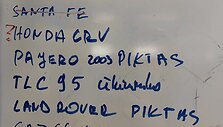 SANTA FE
?HONDA CRV
PAJERO 2003 PIKTAS
TLC 95
LANDROVER PIKTAS